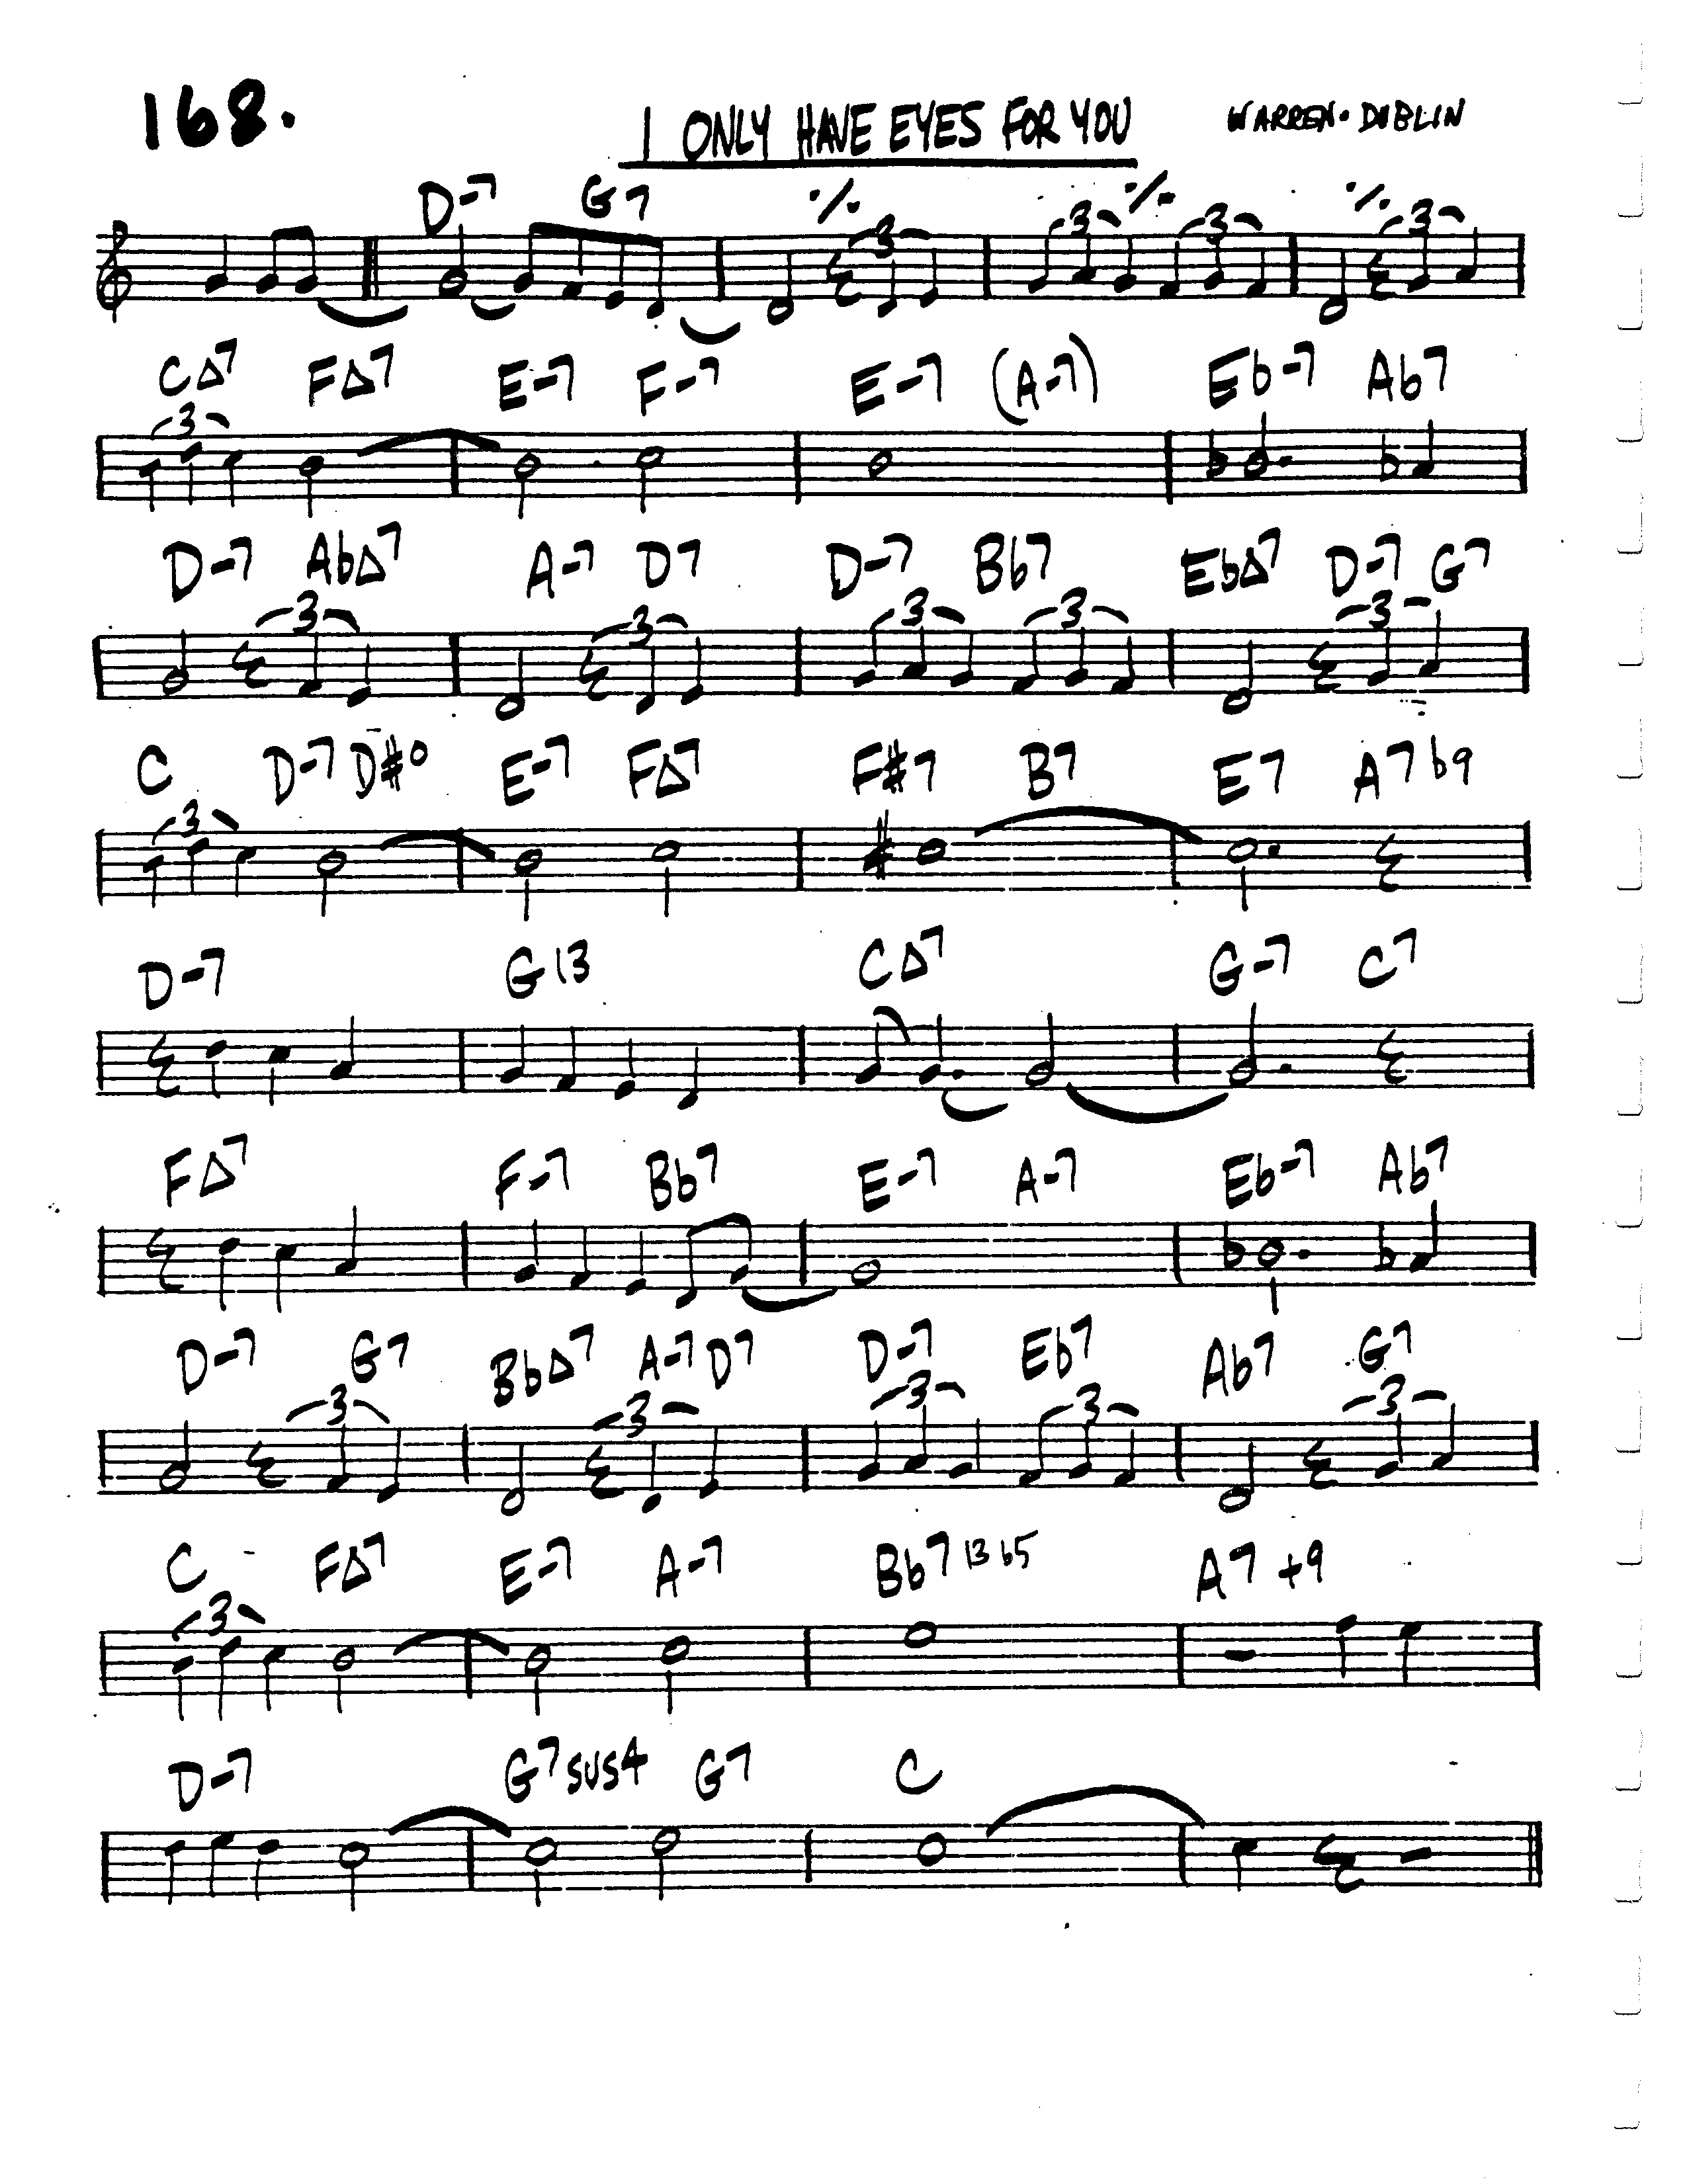 168. I ONLY HAVE EYES FOR YOU WARREN-DUBLIN
D-7 G7 ٪ ٪ ٪
3 3 3 3
C△7 F△7 E-7 F-7 E-7 (A-7) Eb-7 Ab7
3
D-7 Ab△7 A-7 D7 D-7 Bb7 Eb△7 D-7 G7
3 3 3 3 3
C D-7 D#o E-7 F△7 F#7 B7 E7 A7b9
3
D-7 G13 C△7 G-7 C7
F△7 F-7 Bb7 E-7 A-7 Eb-7 Ab7
D-7 G7 Bb△7 A-7 D7 D-7 Eb7 Ab7 G7
3 3 3 3 3
C F△7 E-7 A-7 Bb7 13 b5 A7 +9
3
D-7 G7sus4 G7 C